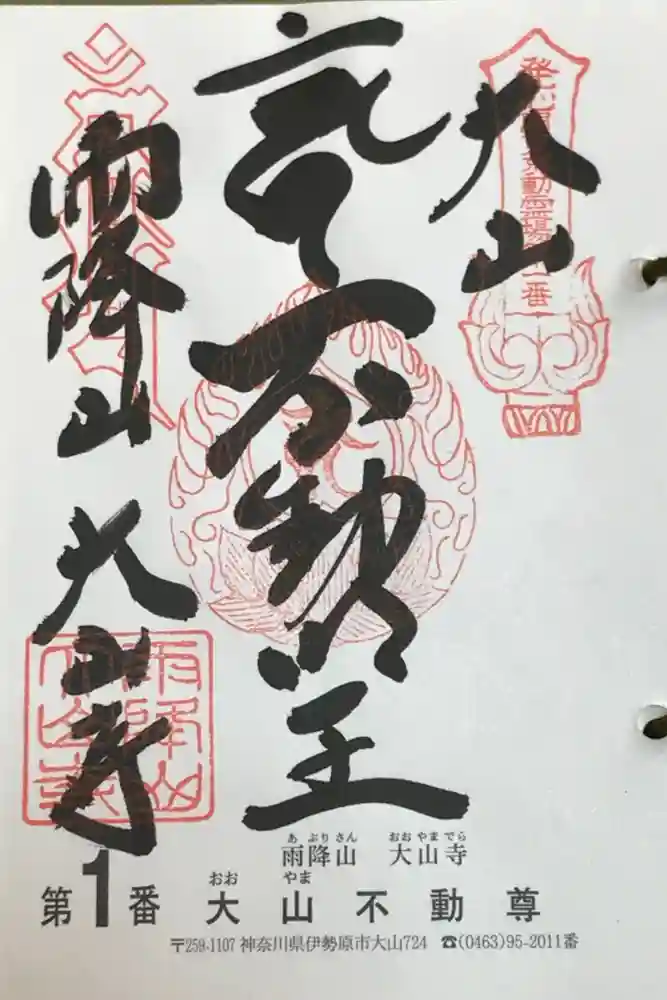 大山
不動明王
雨降山 大山寺
あ ぶり さん おお やま でら
雨降山 大山寺
おお やま
第1番 大山不動尊
〒259-1107 神奈川県伊勢原市大山724 ☎(0463)95-2011番